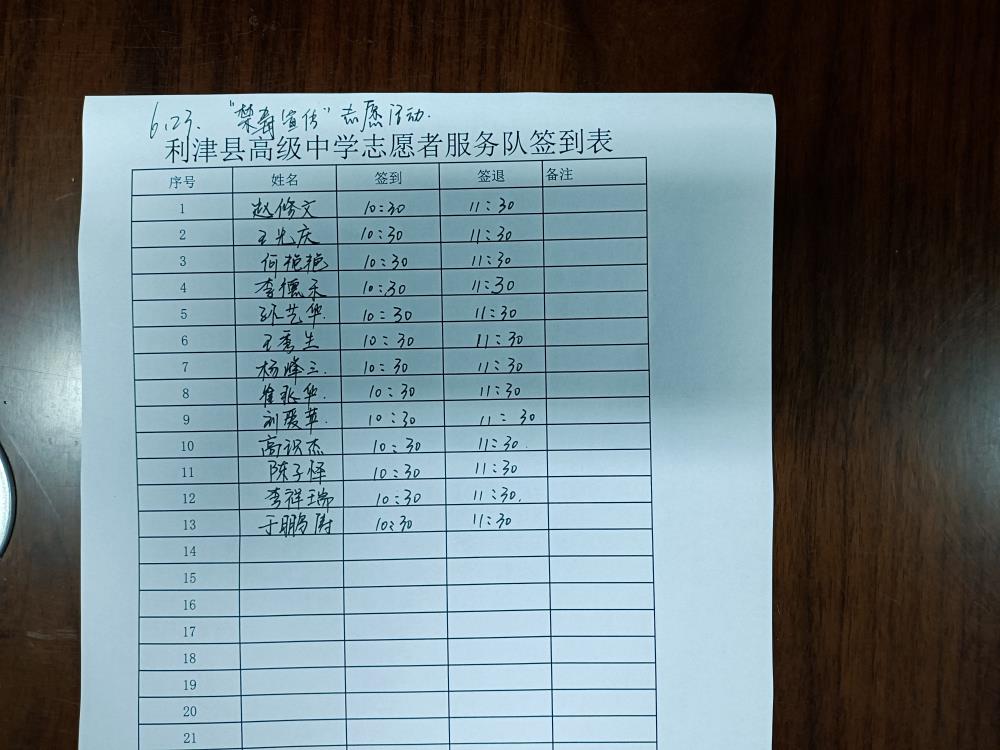 6.23. "禁毒宣传"志愿活动.
利津县高级中学志愿者服务队签到表
序号 姓名 签到 签退 备注
1 赵修文 10:30 11:30
2 王光庆 10:30 11:30
3 何艳艳 10:30 11:30
4 李儒禾 10:30 11:30
5 孙艺华. 10:30 11:30
6 王秀生 10:30 11:30
7 杨峰三. 10:30 11:30
8 崔兆华. 10:30 11:30
9 刘爱苹. 10:30 11:30
10 高识杰 10:30 11:30.
11 陈子怿 10:30 11:30
12 李祥瑞 10:30 11:30.
13 于鹏涛 10:30 11:30
14
15
16
17
18
19
20
21